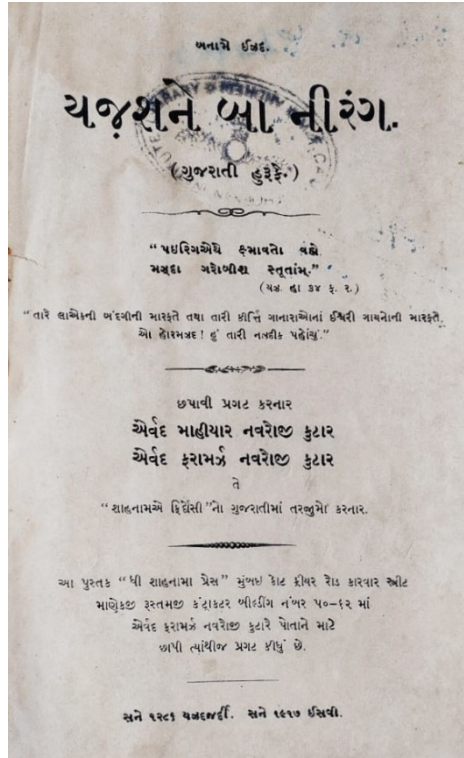 બનામે ઈઅદ.
યજ઼શને બા નીરંગ.
(ગુજરાતી હુરૂફે.)
“પઇરિગએથે
ગરોબીશ સ્તૂતાંમ્.”
(યજ્ઞ. હા ૩૪ ફ. ૨.)
“તારે લાએકની બંદગીની મારફતે તથા તારી કીર્તિ ગાનારાઓનાં ઈશ્વરી ગાયનોની મારફતે,
આ હોરમઝદ! હું તારી નજદીક પહોંચું.”
છપાવી પ્રગટ કરનાર
એર્વદ માહીયાર નવરોજી કુટાર
એર્વદ ફરામર્ઝ નવરોજી કુટાર
તે
“શાહનામએ ફિર્દોસી”નો ગુજરાતીમાં તરજુમો કરનાર.
આ પુસ્તક “ધી શાહનામા પ્રેસ” મુંબઇ કોટ ફ્રીયર રોડ કારવાર સ્ત્રીટ
માણેકજી રૂસતમજી કંટ્રાકટર બીલ્ડીંગ નંબર ૫૦-૬૨ માં
એર્વદ ફરામર્ઝ નવરોજી કુટારે પોતાને માટે
છાપી ત્યાંથીજ પ્રગટ કીધું છે.
સને ૧૨૮૬ યઝદજર્દી. સને ૧૯૧૭ ઈસવી.